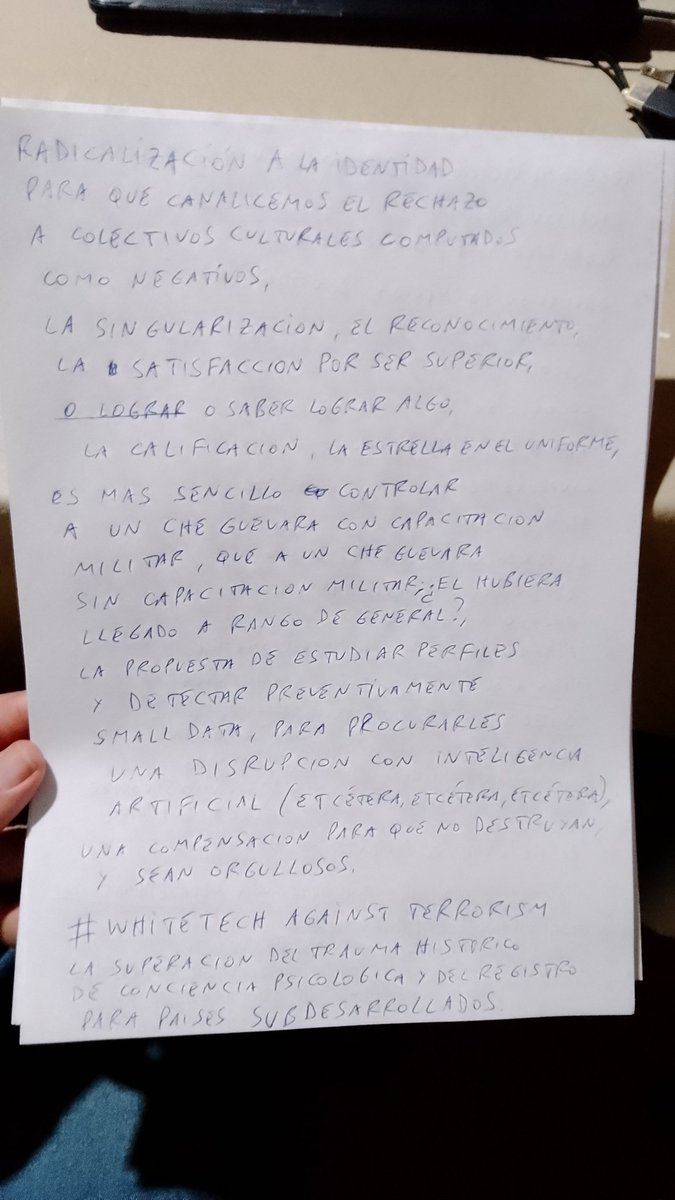 RADICALIZACIÓN A LA IDENTIDAD
PARA QUE CANALICEMOS EL RECHAZO
A COLECTIVOS CULTURALES COMPUTADOS
COMO NEGATIVOS,
LA SINGULARIZACION, EL RECONOCIMIENTO,
LA SATISFACCION POR SER SUPERIOR,
O LOGRAR O SABER LOGRAR ALGO,
LA CALIFICACION, LA ESTRELLA EN EL UNIFORME,
ES MAS SENCILLO CONTROLAR
A UN CHE GUEVARA CON CAPACITACION
MILITAR, QUE A UN CHE GUEVARA
SIN CAPACITACION MILITAR, ¿EL HUBIERA
LLEGADO A RANGO DE GENERAL?,
LA PROPUESTA DE ESTUDIAR PERFILES
Y DETECTAR PREVENTIVAMENTE
SMALL DATA, PARA PROCURARLES
UNA DISRUPCION CON INTELIGENCIA
ARTIFICIAL (ETCÉTERA, ETCÉTERA, ETCÉTERA),
UNA COMPENSACION PARA QUE NO DESTRUYAN,
Y SEAN ORGULLOSOS.
# WHITETECH AGAINST TERRORISM
LA SUPERACION DEL TRAUMA HISTORICO
DE CONCIENCIA PSICOLOGICA Y DEL REGISTRO
PARA PAISES SUBDESARROLLADOS.